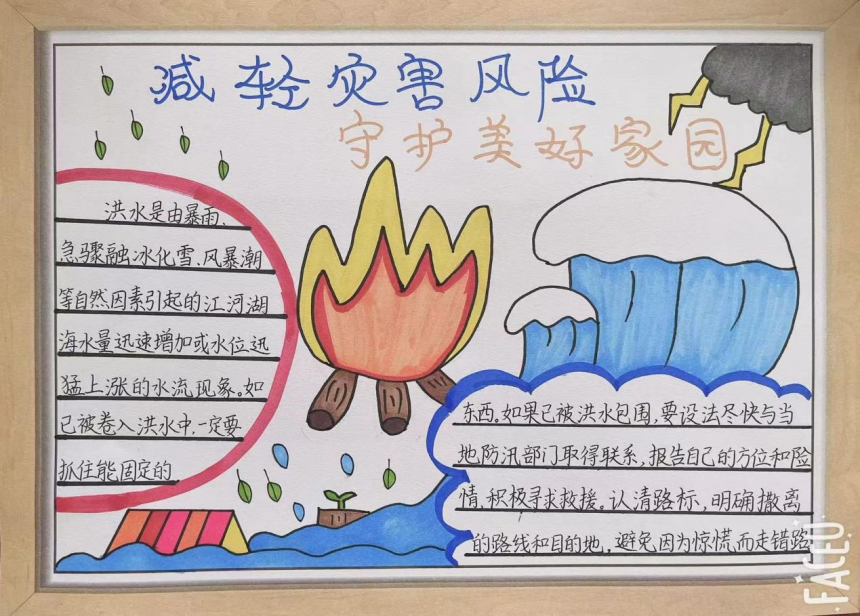 减轻灾害风险
守护美好家园
洪水是由暴雨、
急骤融冰化雪、风暴潮
等自然因素引起的江河湖
海水量迅速增加或水位迅
猛上涨的水流现象。如
已被卷入洪水中,一定要
抓住能固定的
东西。如果已被洪水包围,要设法尽快与当
地防汛部门取得联系,报告自己的方位和险
情,积极寻求救援。认清路标,明确撒离
的路线和目的地,避免因为惊慌而走错路
FACEU